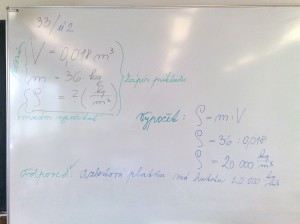 33/úl2
V = 0,018 m³
m = 36 kg
ρ = ? (kg/m³)
zápis příkladu
Výpočet:
ρ = m : V
ρ = 36 : 0,018
ρ = 20 000 kg/m³
Odpověď: má hustotu 20 000 kg/m³